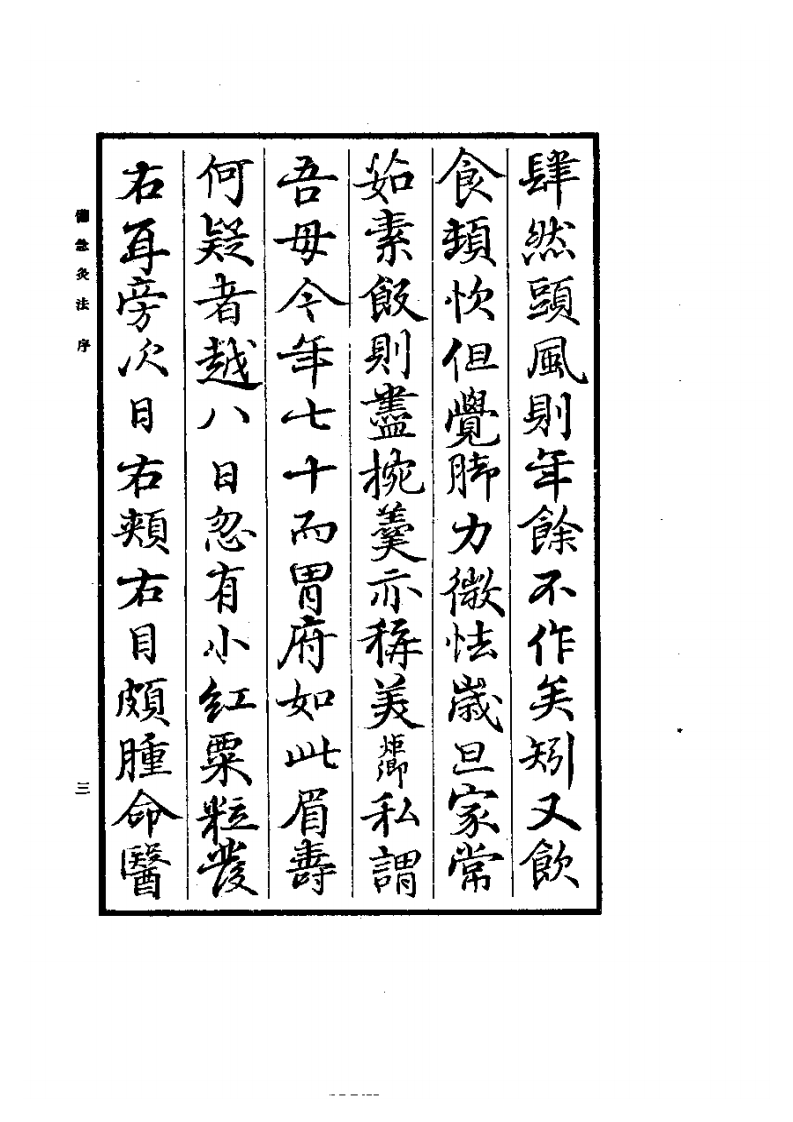 肆然頭風則年餘不作矣矧又飲
食頗忺但覺脚力微怯歲旦家常
茹素飯則盡椀羹亦稱美炬卿私謂
吾母今年七十而胃府如此眉壽
何疑者越八日忽有小紅粟粒發
右耳旁次日右頰右目頗腫命醫
備急灸法 序
三